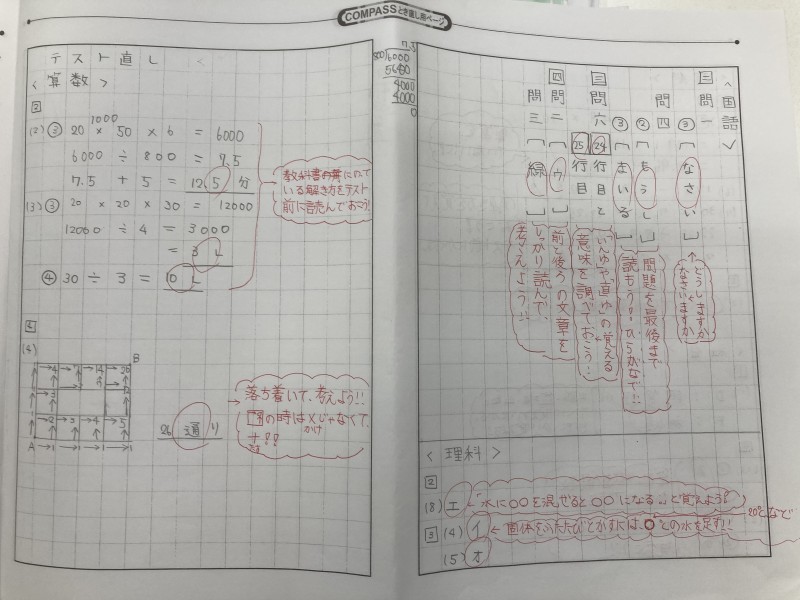 COMPASSとき直し用ページ
テスト直し
<算数>
2
1000
(2)③ 20 × 50 × 6 = 6000
6000 ÷ 800 = 7.5
7.5 + 5 = 12.5 分
(3)③ 20 × 20 × 30 = 12000
12000 ÷ 4 = 3000
= 3 L
④ 30 ÷ 3 = 10 L
いる解き方をテスト
前に読んでおこう!
7.5
800 6000
5600
4000
4000
0
4
(4)
B
A→1→1→1→1
26 通り
落ち着いて、考えよう!!
の時は×じゃなくて、
かけ
+!!
たす
<国語>
三
問一
③ [なさい]
どうしますか
なさいますか
問四
② [もうし]
③ [まいる]
問題を最後まで
読もう!!ひらがなで!!
三
問六
24 行目と
25 行目
「いんゆ」や「直ゆ」の覚える
意味を調べておこう!!
四
問二 [ウ]
前と後ろの文章を
問三 [線]
しっかり読んで、
考えよう!!
<理科>
2
(8) エ ←「水に〇〇を混ぜると〇〇になる…」と覚えよう!
20℃など
3 (4) イ ← 固体をふたたびとかすには、0℃の水を足す!!
(5) オ